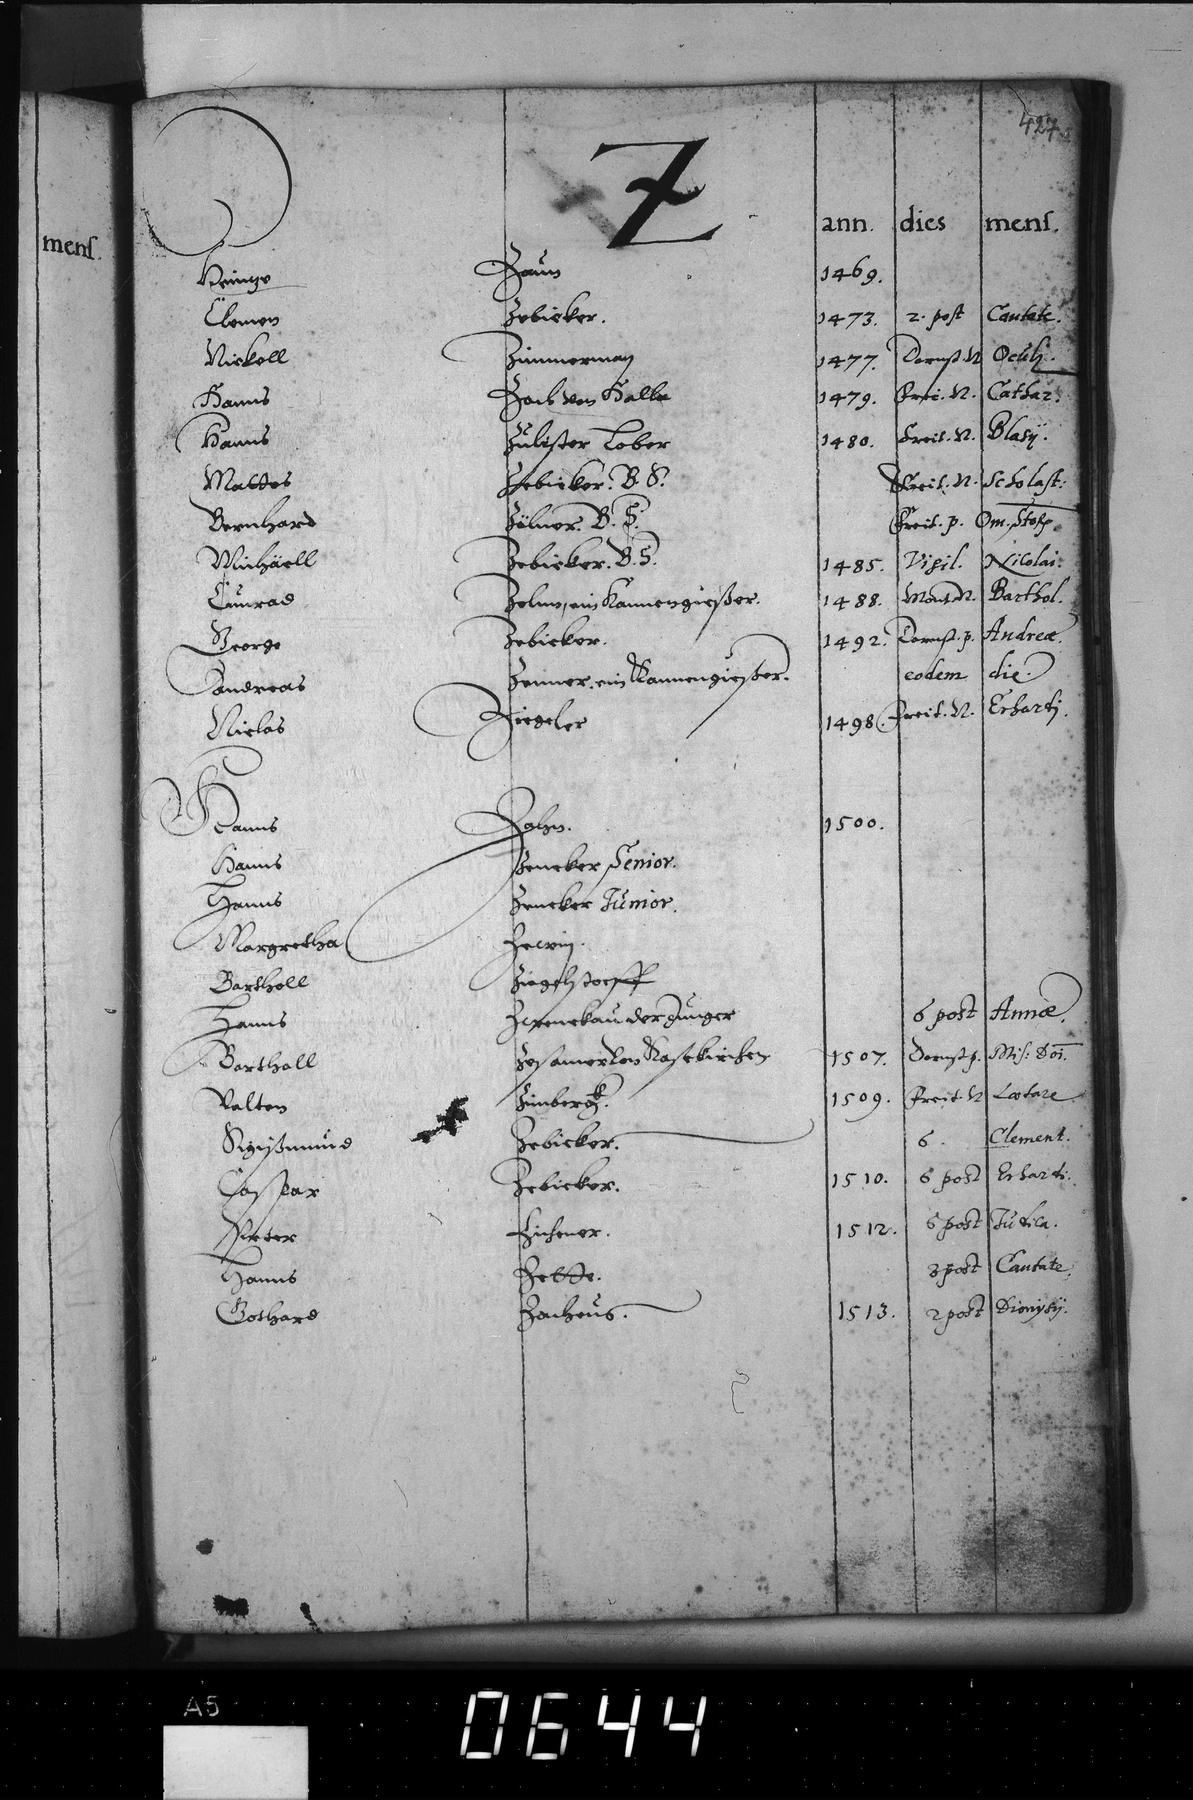 427
Z
mens.
ann. dies mens.
Heintze Zaun 1469.
Clemen Zebicker. 1473. 2. post Cantate.
Nickell Zimmerman 1477. Dornst. N Oculj.
Hanns Zoch von Halle 1479. Freit. N. Cathar.
Hanns Lober 1480. Freit. N. Blasÿ.
Mattes Zebicker. B. S. Freit. N. Scholast:
Bernhard Zölner. B. S. Freit. p. Om.
Michäell Zebicker. B. S. 1485. Vigil. Nicolai.
Cunrad Zelm, ein Kannengießer. 1488. Mont. N. Barthol.
George Zebicker. 1492. Dornst. p. Andreæ.
Andreas Zenner, ein Kannengießer. eodem die.
Niclas Ziegeler 1498. Freit. N. Erhartj.
Hanns Zohn. 1500.
Hanns Zencker Senior.
Hanns Zencker Junior.
Margretha
Barthell
Hanns der Junger 6 post Annæ.
Barthell 1507. Dornst p. Mis: Doi.
Valten Zimbergk. 1509. Freit. N Lætare
Sigißmund Zebicker. 6. Clement.
Caspar Zebicker. 1510. 6 post Erharti.
Peter Zichener. 1512. 6 post Judica.
Hanns Zette. 3 post Cantate.
Gothard Zacheus. 1513. 2 post Dionysÿ.
A5
0644